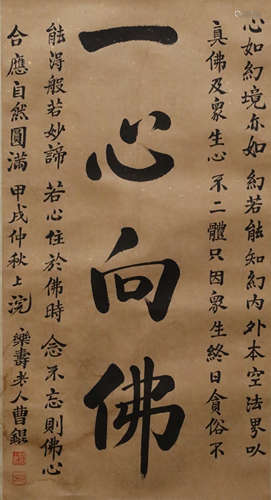 一心向佛
心如幻境亦如幻若能知幻内外本空法界以
真佛及众生心不二體只因众生終日貪俗不
能得般若妙諦若心住於佛時念不忘則佛心
合應自然圓滿甲戌仲秋上浣
樂壽老人曹錕